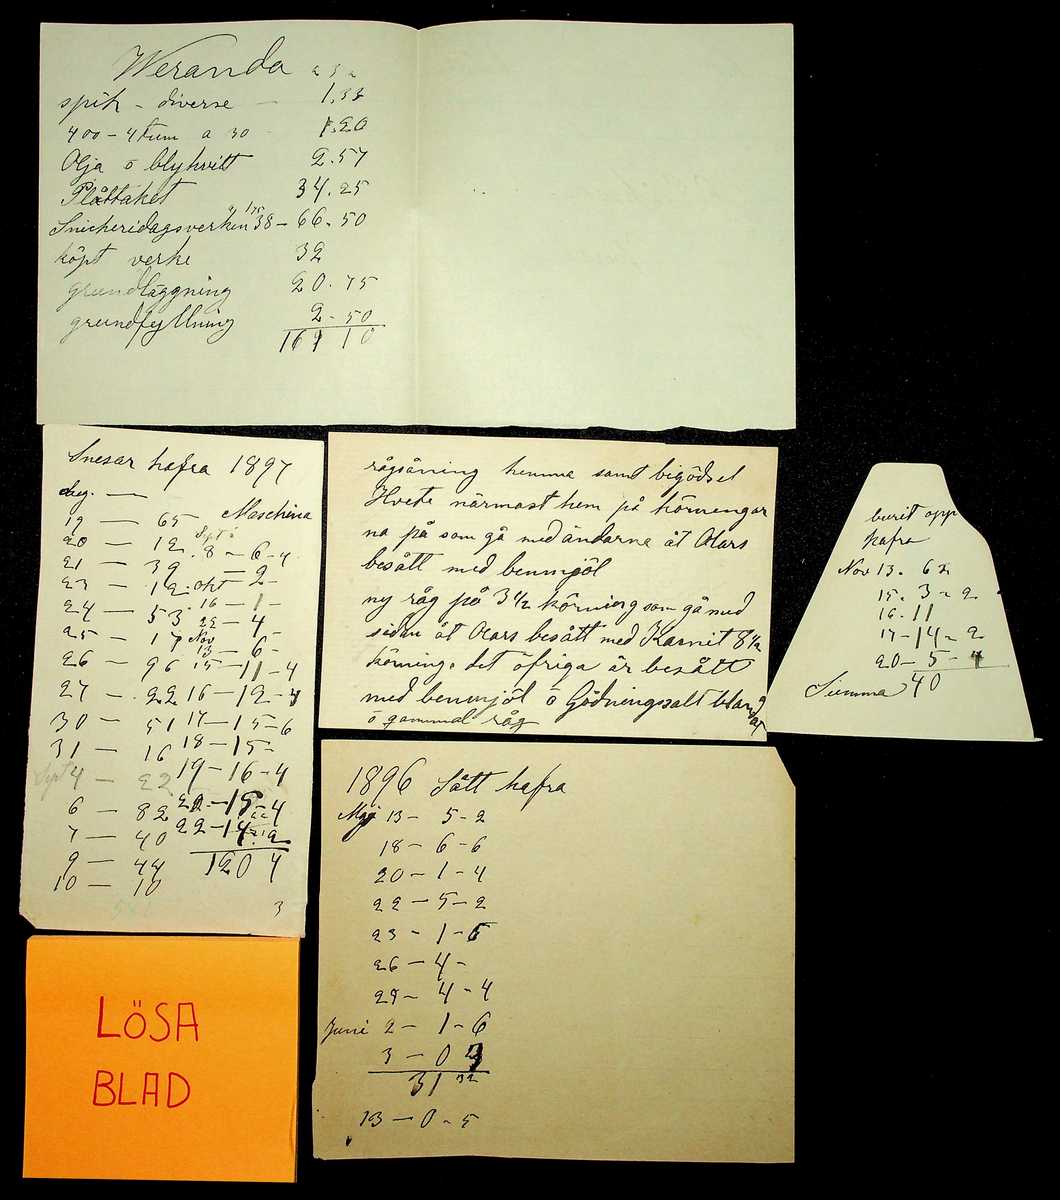 Weranda
spik - diverse - 1,33
400 - 4 tum a 30 1.20
Olja o blyhvitt 2.57
Plåttaket 34.25
Snickeridagsverken 38 - 66.50
köpt verke 32
grundläggning 20.75
grundfyllning 2-50
161 10
Snesar hafra 1897
Aug. —
Maschina
19 — 65
20 — 12
8 - 6-4
21 — 39
- 2
23 — 12
okt
24 — 53
16 - 1 -
22 - 4 -
25 — 17
Nov
13 - 6 -
26 — 96
15 - 11 - 4
27 — 22
16 - 12 - 4
30 — 51
17 - 15 - 6
31 — 16
18 - 15 -
Sept 4 — 22
19 - 16 - 4
6 — 82
21 - 15 - 4
7 — 40
22 - 14 - 2
9 — 44
120 4
10 — 10
581
3
rågsåning hemma samt bigödsel
Hvete närmast hem på körningar
na på som gå med ändarna åt Olars
besått med benmjöl
ny råg på 3 1/2 körning som gå med
sidan åt Olars besått med Karnit 8 1/2
körning. det öfriga är besått
med benmjöl o Gödningssalt blandat
o gammal råg
burit opp
hafra
Nov 13. 6 2
15. 3 - 2
16. 11
17 - 14 - 2
20 - 5 - 4
Summa 40
1896 Sått hafra
Maj 13 - 5 - 2
18 - 6 - 6
20 - 1 - 4
22 - 5 - 2
23 - 1 - 5
26 - 4 -
29 - 4 - 4
Juni 2 - 1 - 6
3 - 0 3
31 32
13 - 0 - 5
LÖSA
BLAD